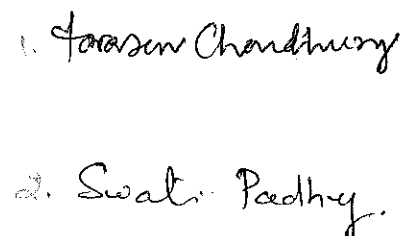 1. Tarasen Choudhury
2. Swati Padhy.